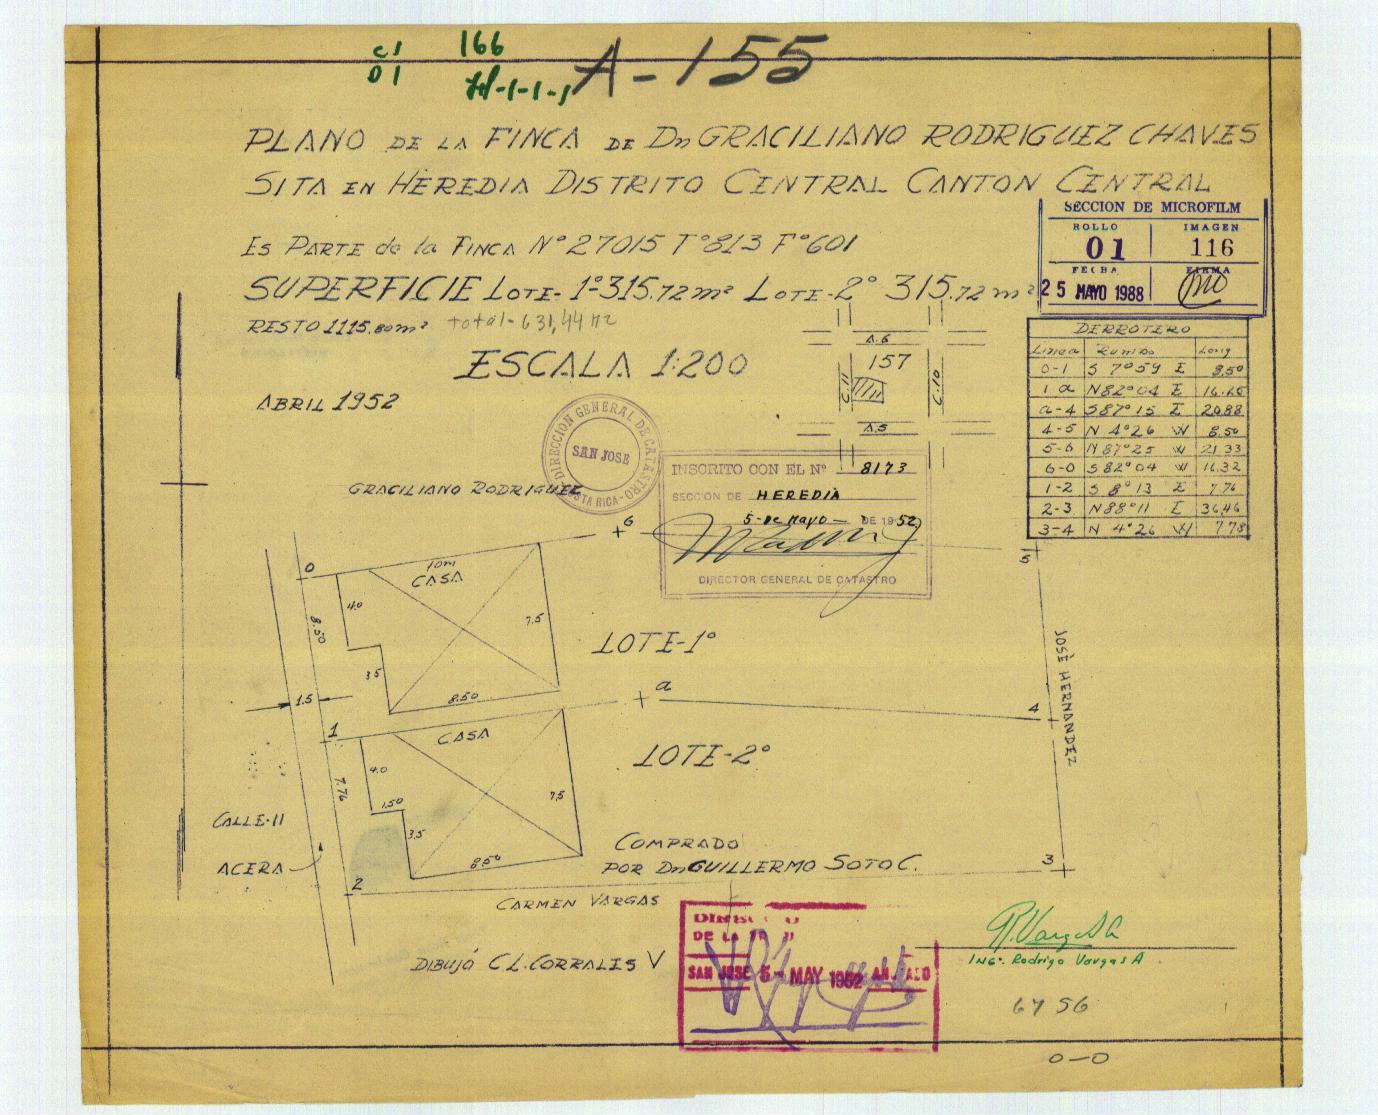 C1 166
01 H-1-1-1
A-155
PLANO DE LA FINCA DE Dn GRACILIANO RODRIGUEZ CHAVES
SITA EN HEREDIA DISTRITO CENTRAL CANTON CENTRAL
ES PARTE de la FINCA Nº 27015 Tº 813 Fº 601
SUPERFICIE LOTE-1º 315.72 m² LOTE-2º 315.72 m²
RESTO 1115.80 m² total-631,44
ESCALA 1:200
ABRIL 1952
SECCION DE MICROFILM
ROLLO IMAGEN
01 116
FECHA FIRMA
25 MAYO 1988
A.6
157
C.11
C.10
A.5
DERROTERO
Linea Rumbo Long
0-1 S 7º59 E 8.50
1 a N82º04 E 16.25
a-4 S87º15 E 20.88
4-5 N 4º26 W 8.50
5-6 N 87º25 W 21.33
6-0 S 82º04 W 16.32
1-2 S 8º13 E 7.76
2-3 N88º11 E 36.46
3-4 N 4º26 W 7.78
DIRECCION GENERAL DE CATASTRO
SAN JOSE
COSTA RICA
INSCRITO CON EL Nº 8173
SECCION DE HEREDIA
5-de Mayo- DE 1952
DIRECTOR GENERAL DE CATASTRO
GRACILIANO RODRIGUEZ
6
5
0
10m
CASA
4.0
7.5
8.50
LOTE-1º
3.5
8.50
1.5
a
4
JOSÈ HERNANDEZ
1
CASA
LOTE-2º
4.0
7.76
1.50
7.5
3.5
8.50
CALLE-11
ACERA
COMPRADO
POR Dn GUILLERMO SOTO C.
3
2
CARMEN VARGAS
DIBUJÓ C L. CORRALES V
DE LA
SAN JOSE 5-MAY 1952
R. Vargas A
INGº. Rodrigo Vargas A
6756
0-0